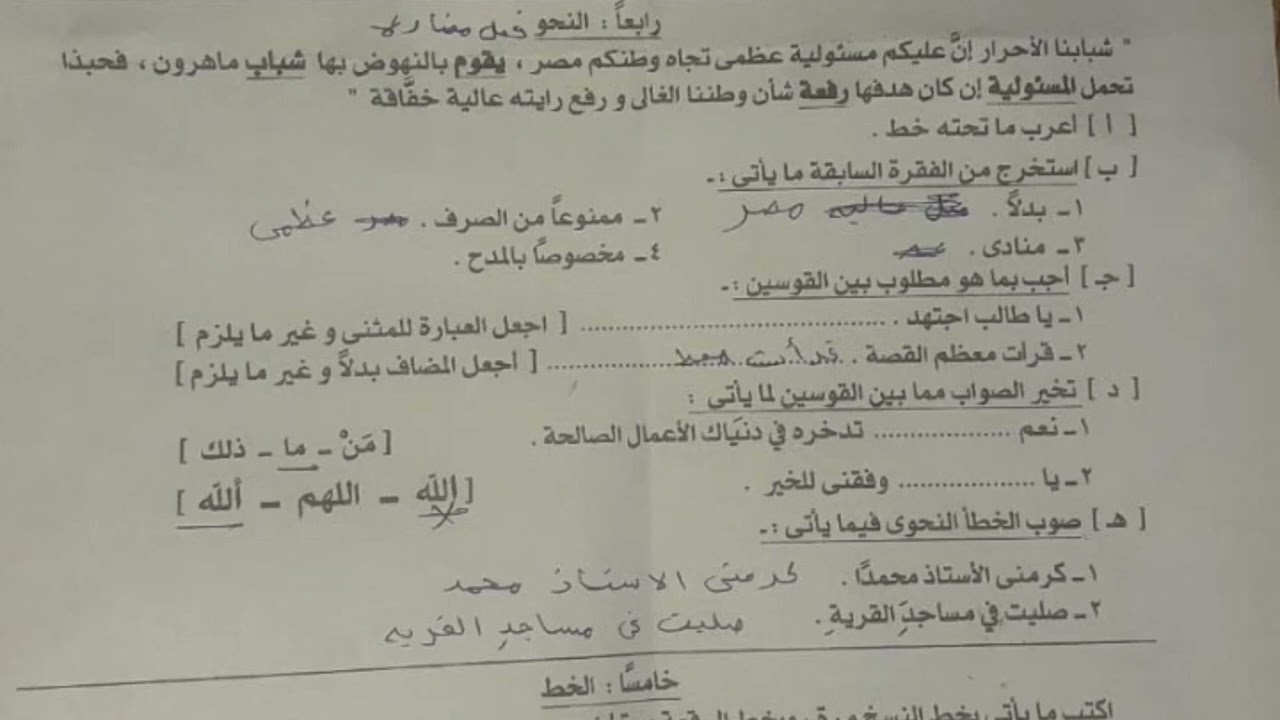 رابعاً : النحو فعل مضارع
" شبابنا الأحرار إنَّ عليكم مسئولية عظمى تجاه وطنكم مصر ، يقوم بالنهوض بها شباب ماهرون ، فحبذا
تحمل المسئولية إن كان هدفها رفعة شأن وطننا الغالى و رفع رايته عالية خفَّاقة "
[ أ ] أعرب ما تحته خط .
[ ب ] استخرج من الفقرة السابقة ما يأتى :ـ
١ـ بدلاً . مصر ٢ـ ممنوعاً من الصرف . عظمى
٣ـ منادى . ٤ـ مخصوصًا بالمدح .
[ جـ ] أجب بما هو مطلوب بين القوسين :ـ
١ـ يا طالب اجتهد . .......................................... [ اجعل العبارة للمثنى و غير ما يلزم ]
٢ـ قرأت معظم القصة . قرأت .................. [ أجعل المضاف بدلاً و غير ما يلزم ]
[ د ] تخير الصواب مما بين القوسين لما يأتى :
١ـ نعم .................. تدخره في دنيَاك الأعمال الصالحة . [ مَنْ ـ ما ـ ذلك ]
٢ـ يا .................. وفقنى للخير . [ الله ـ اللهم ـ ألله ]
[ هـ ] صوب الخطأ النحوى فيما يأتى :ـ
١ـ كرمنى الأستاذ محمدًا . كرمنى الاستاذ محمد
٢ـ صليت في مساجدَ القريةِ . صليت فى مساجدِ القريه
خامسًا : الخط
اكتب ما يأتى بخط النسخ مرة